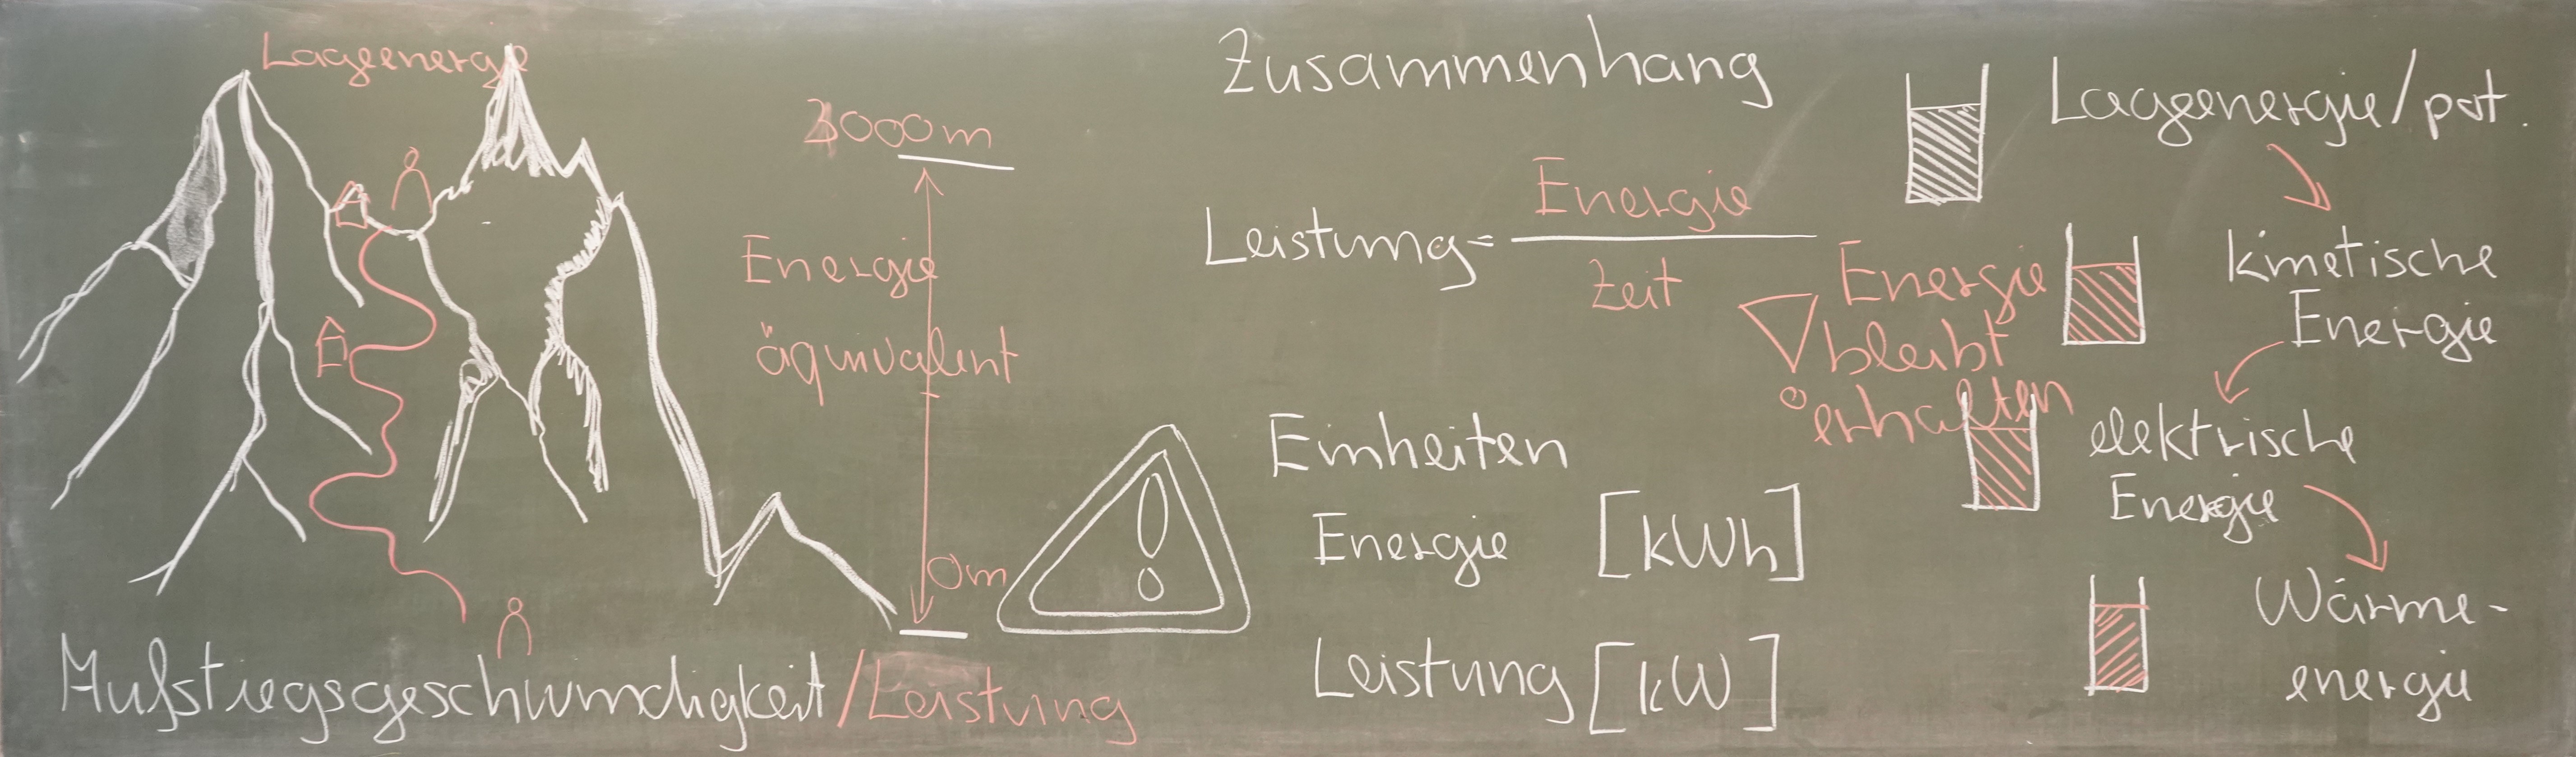 Lageenergie
3000m
Energie
äquivalent
0m
Aufstiegsgeschwindigkeit/Leistung
Zusammenhang
Leistung= Energie
Zeit
Energie
bleibt
erhalten
Einheiten
Energie [kWh]
Leistung [kW]
Lageenergie/pot.
kinetische
Energie
elektrische
Energie
Wärme-
energie